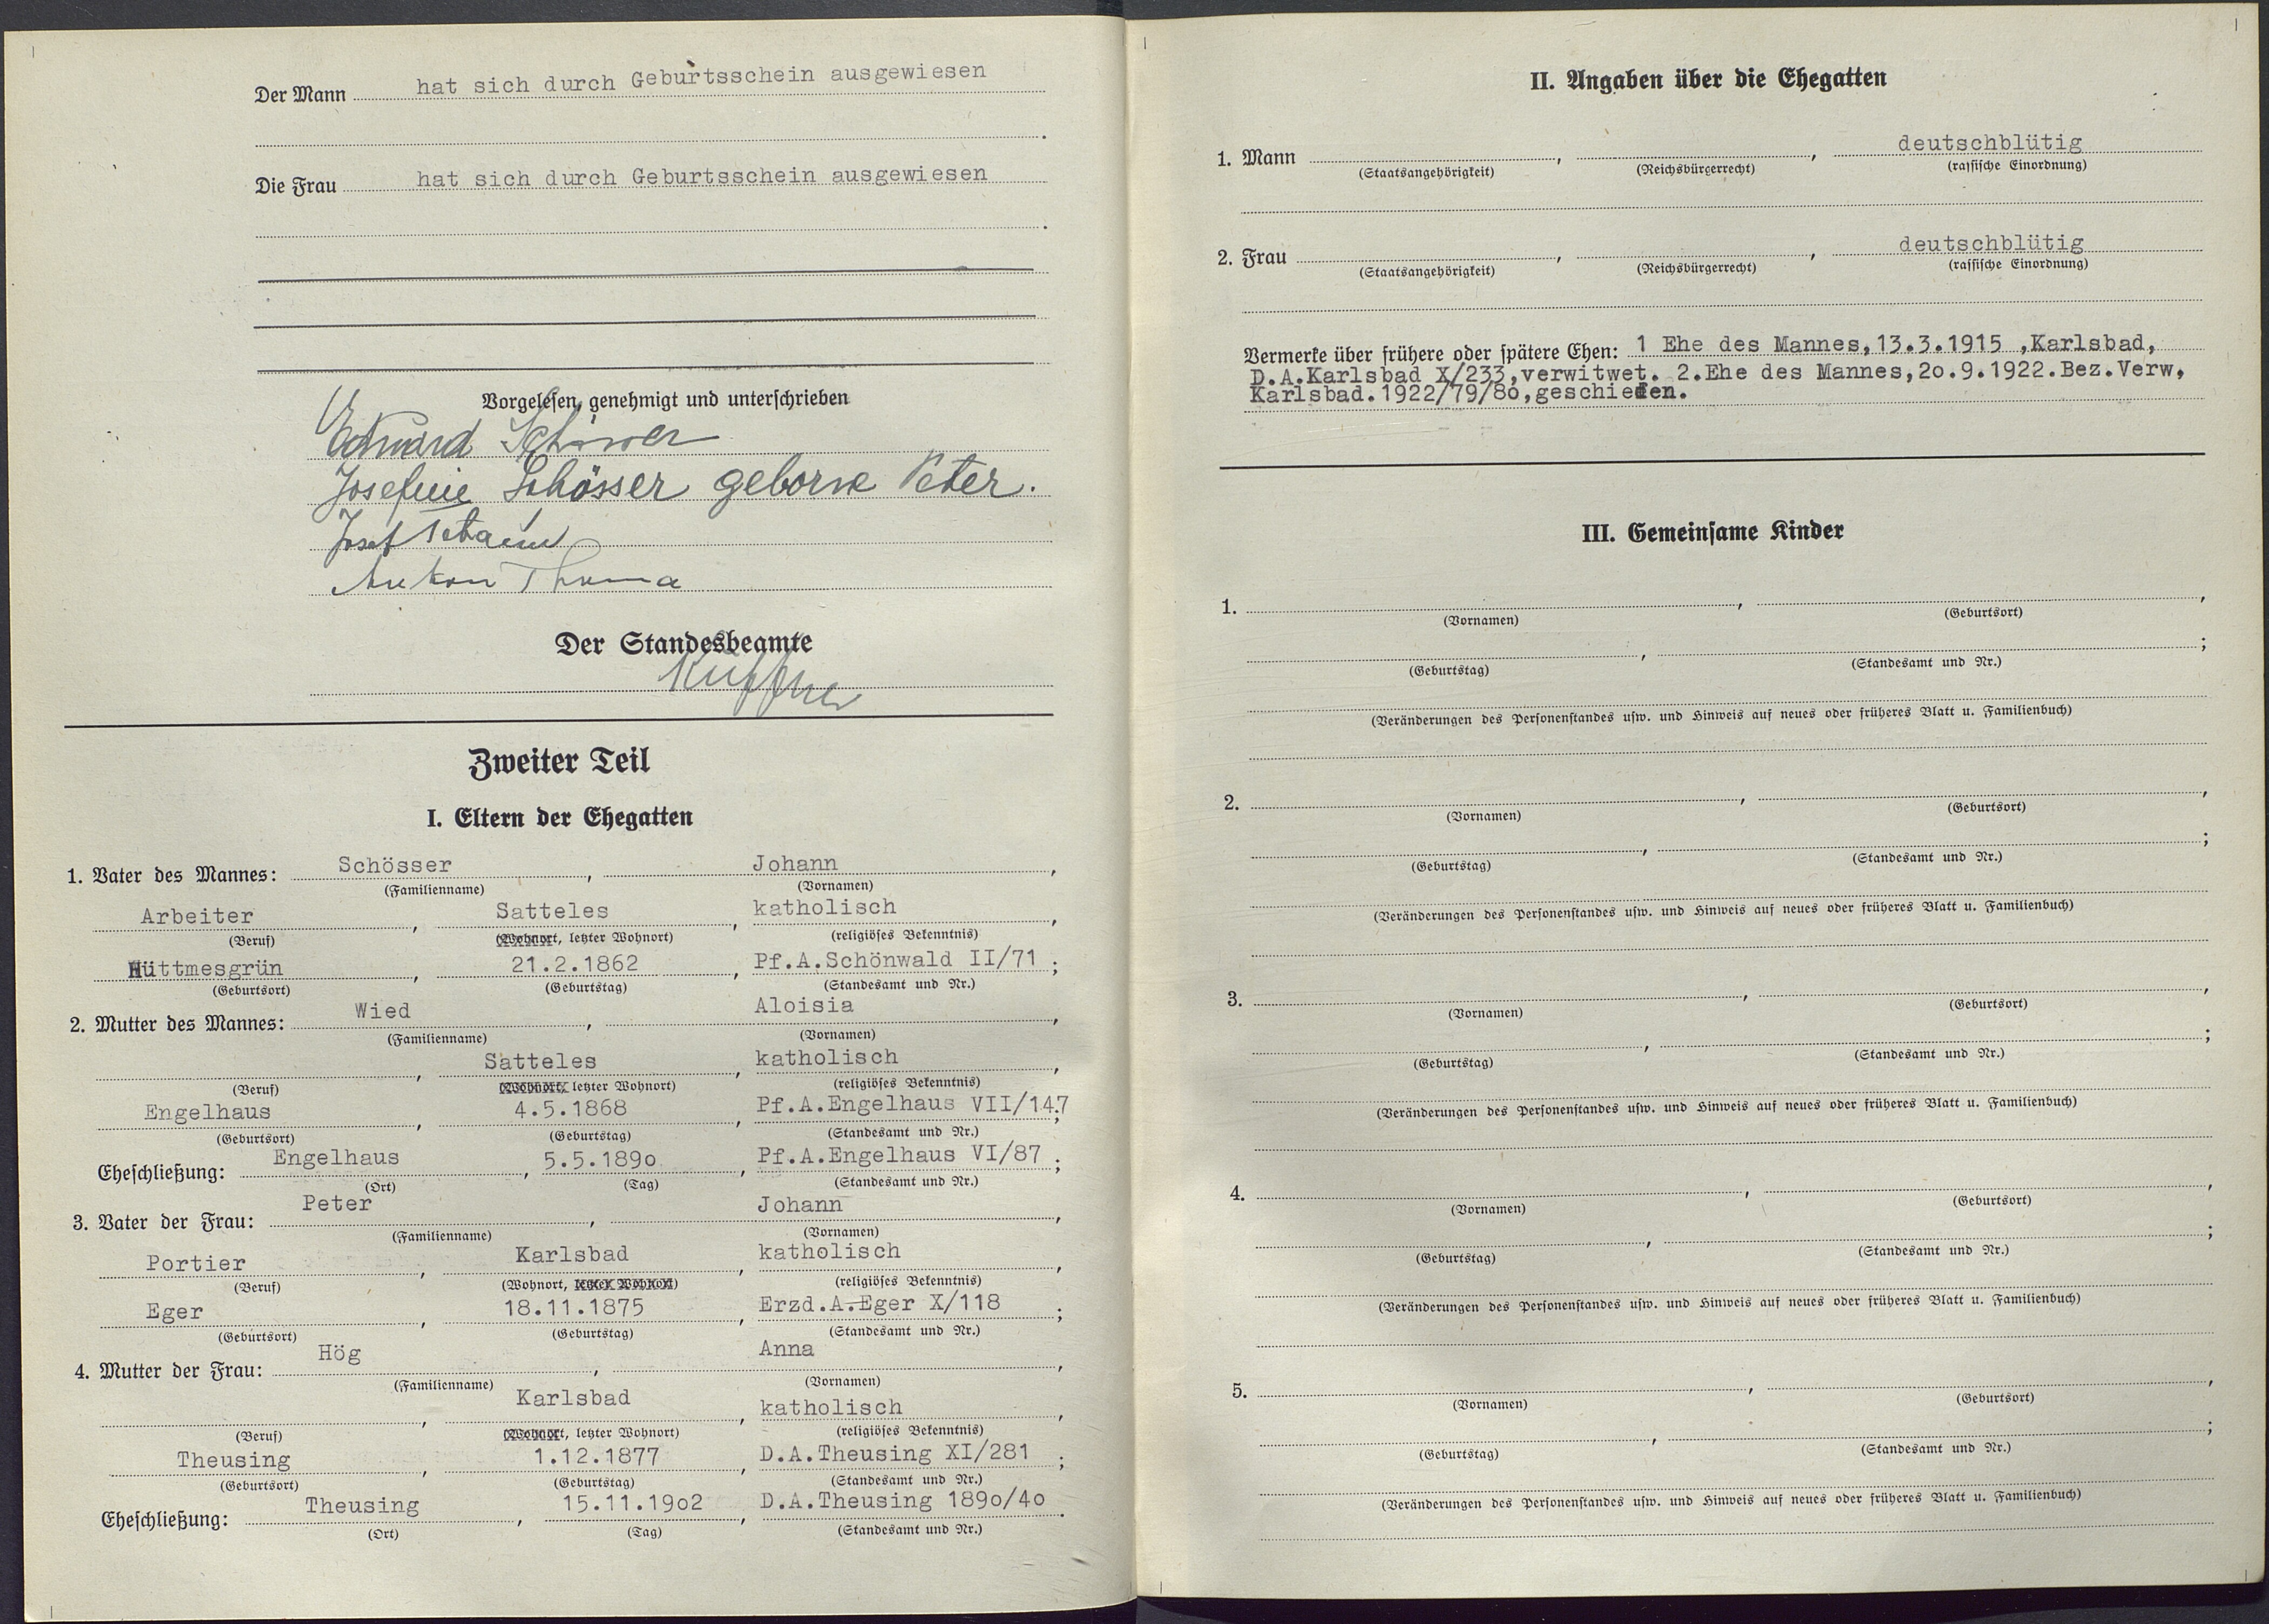 Der Mann hat sich durch Geburtsschein ausgewiesen
.
Die Frau hat sich durch Geburtsschein ausgewiesen
.
Vorgelesen, genehmigt und unterschrieben
Eduard
Josefine Schösser geborne Peter.
Josef
Anton Thoma
Der Standesbeamte
Zweiter Teil
I. Eltern der Ehegatten
1. Vater des Mannes: Schösser, Johann,
(Familienname) (Vornamen)
Arbeiter, Satteles, katholisch,
(Beruf) (Wohnort, letzter Wohnort) (religiöses Bekenntnis)
Hüttmesgrün, 21.2.1862, Pf.A.Schönwald II/71;
(Geburtsort) (Geburtstag) (Standesamt und Nr.)
2. Mutter des Mannes: Wied, Aloisia,
(Familienname) (Vornamen)
, Satteles, katholisch,
(Beruf) (Wohnort, letzter Wohnort) (religiöses Bekenntnis)
Engelhaus, 4.5.1868, Pf.A.Engelhaus VII/147;
(Geburtsort) (Geburtstag) (Standesamt und Nr.)
Eheschließung: Engelhaus, 5.5.189o, Pf.A.Engelhaus VI/87;
(Ort) (Tag) (Standesamt und Nr.)
3. Vater der Frau: Peter, Johann,
(Familienname) (Vornamen)
Portier, Karlsbad, katholisch,
(Beruf) (Wohnort, letzter Wohnort) (religiöses Bekenntnis)
Eger, 18.11.1875, Erzd.A.Eger X/118;
(Geburtsort) (Geburtstag) (Standesamt und Nr.)
4. Mutter der Frau: Hög, Anna,
(Familienname) (Vornamen)
, Karlsbad, katholisch,
(Beruf) (Wohnort, letzter Wohnort) (religiöses Bekenntnis)
Theusing, 1.12.1877, D.A.Theusing XI/281;
(Geburtsort) (Geburtstag) (Standesamt und Nr.)
Eheschließung: Theusing, 15.11.19o2, D.A.Theusing 189o/4o.
(Ort) (Tag) (Standesamt und Nr.)
II. Angaben über die Ehegatten
1. Mann , , deutschblütig
(Staatsangehörigkeit) (Reichsbürgerrecht) (rassische Einordnung)
2. Frau , , deutschblütig
(Staatsangehörigkeit) (Reichsbürgerrecht) (rassische Einordnung)
Vermerke über frühere oder spätere Ehen: 1 Ehe des Mannes,13.3.1915 ,Karlsbad,
D.A.Karlsbad X/233,verwitwet. 2.Ehe des Mannes,2o.9.1922.Bez.Verw,
Karlsbad.1922/79/8o,geschieden.
III. Gemeinsame Kinder
1. , ,
(Vornamen) (Geburtsort)
, ;
(Geburtstag) (Standesamt und Nr.)
(Veränderungen des Personenstandes usw. und Hinweis auf neues oder früheres Blatt u. Familienbuch)
2. , ,
(Vornamen) (Geburtsort)
, ;
(Geburtstag) (Standesamt und Nr.)
(Veränderungen des Personenstandes usw. und Hinweis auf neues oder früheres Blatt u. Familienbuch)
3. , ,
(Vornamen) (Geburtsort)
, ;
(Geburtstag) (Standesamt und Nr.)
(Veränderungen des Personenstandes usw. und Hinweis auf neues oder früheres Blatt u. Familienbuch)
4. , ,
(Vornamen) (Geburtsort)
, ;
(Geburtstag) (Standesamt und Nr.)
(Veränderungen des Personenstandes usw. und Hinweis auf neues oder früheres Blatt u. Familienbuch)
5. , ,
(Vornamen) (Geburtsort)
, ;
(Geburtstag) (Standesamt und Nr.)
(Veränderungen des Personenstandes usw. und Hinweis auf neues oder früheres Blatt u. Familienbuch)